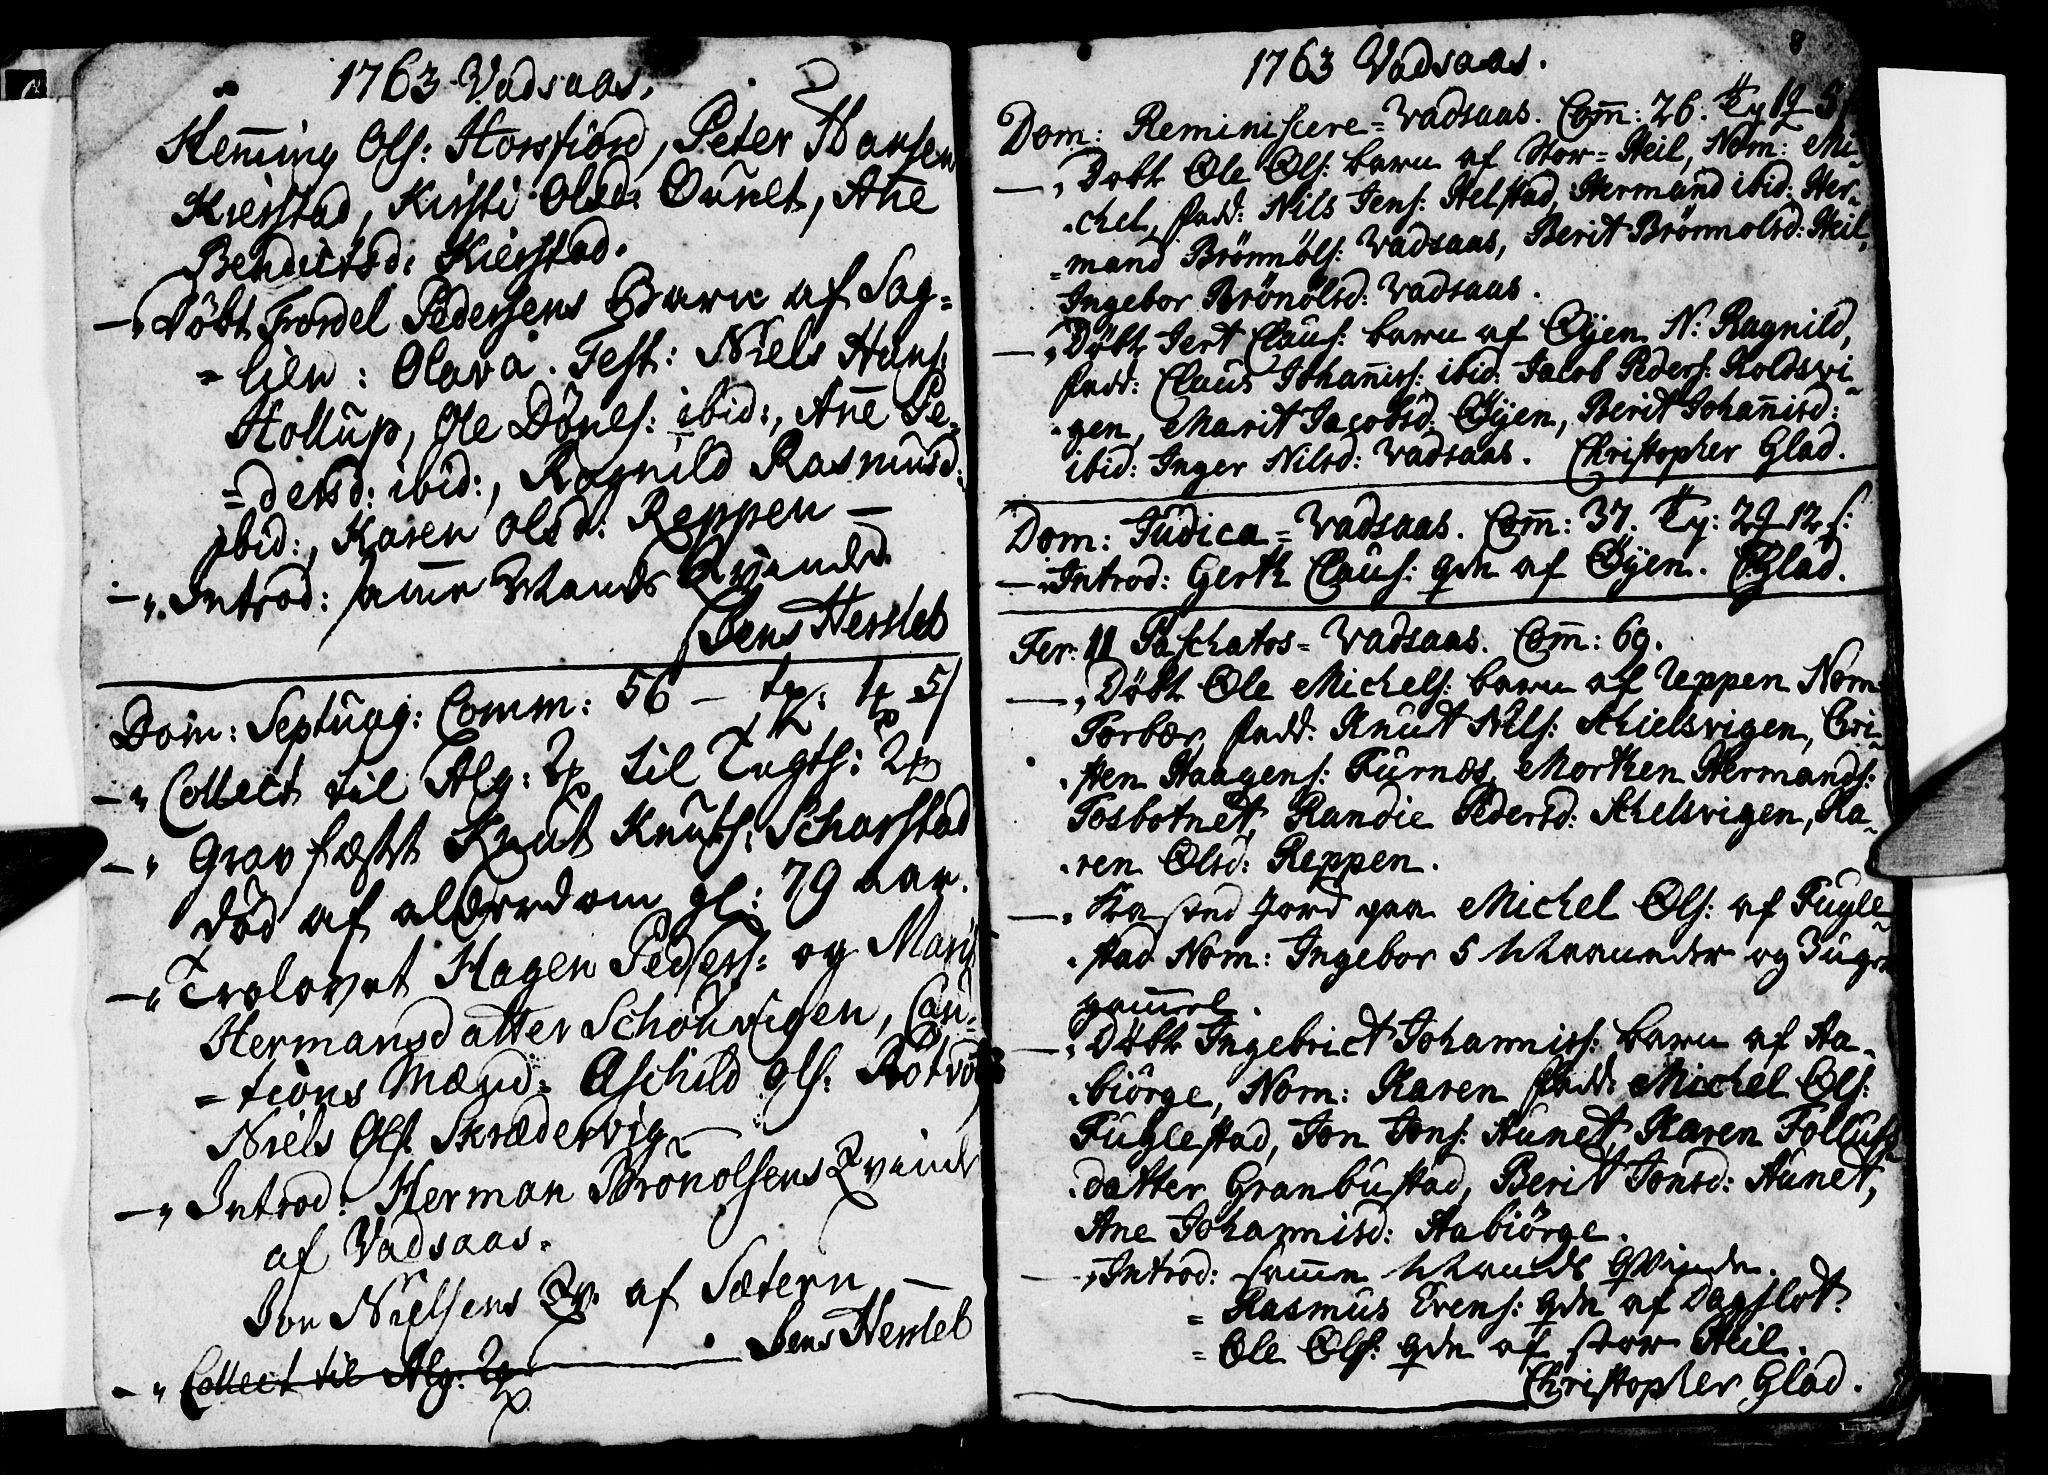 1763 Vadsaas.
Hem̄ing Ols: Horsfiord, Peter Hansen
Kierstad, Kirsti Olsd: Öunet, Ane
Behdictsd: Kierstad.
—„ Döbt Frordel Pedersens Barn af Sag=
= lien: Olava. Test: Niels Hans:
Hollup, Ole Dönls: ibid:, Ane Pe-
=dersd: ibid:, Ragnild Rasmusd:
ibid:, Karen Olsd: Reppen —
—„ Introd: samme Mands Qvinde
Jens Hersleb
Dom: Septuag: Comm: 56 —
—„ Collect til Alg: til Tugts:
—„ Gravfæstt Knut Knuts: Scharstad
död af alderdom gl: 79 aar.
—„ Trolovet Hagen Peders: og Marit
Hermansdatter Schönvigen, Cau-
=tions Mænd: Aschild Ols:
Niels Ols: Skrædervig
—„ Introd: Herman Brönolsens Qvinde
af Vadsaas.
Jon Nielsens Qv. af Sætern —
Jens Hersleb
—„ Collect til Alg:
8
1763 Vadsaas.
Dom: Reminiscere = Vadsaas. Com̄: 26.
—, Döbt Ole Ols: barn af Stor=Heil, Nom: Mi-
chel, fadd: Nils Jens: Helstad, Hermand ibid: Her-
=mand Brönnols: Vadsaas, Berit Brönnolsd: Heil,
Ingebor Brönolsd: Vadsaas.
—, Döbt Jert Claus: barn af Öÿen N: Ragnild,
fadd: Claus Johan̄iss: ibid: Jacob Peders: Koldsvi-
gen, Marit Jacobsd: Öÿen, Berit Johan̄isd:
ibid: Inger Nilsd: Vadsaas. Christopher Glad.
Dom: Judica = Vadsaas. Com̄: 37. Tv: 2 12 s:
—, Introd: Gerth Claus: qvn af Öÿen. CGlad.
Fer: II Paschatos = Vadsaas. Com̄: 69.
—, Döbt Ole Michels: barn af Reppen Nom:
Torber, fadd: Knut Nils: Schielsvigen, Cri-
sten Haagens: Furnæs, Morthen Hermands:
Fosbotnet, Randie Pedersd: Schelsvigen, Ka-
ren Olsd: Reppen.
—, Kasted Jord paa Michel Ols: af Fugle-
stad Nom: Ingebor 5 Maaneder og 3 uger
gam̄el.
—, Döbt Ingebrict Johanniss: barn af Aa-
biörge, Nom: Karen fadd: Michel Ols:
Fuglestad, Jon Jons: Aunet, Karen Follufs
datter Granbustad, Berit Jonsd: Aunet,
Ane Johannisd: Aabiörge.
—, Introd: samme Mands qvinde.
= Rasmus Evens: qvn af Dagslot.
= Ole Ols: qvn af stor Heil.
Christopher Glad.